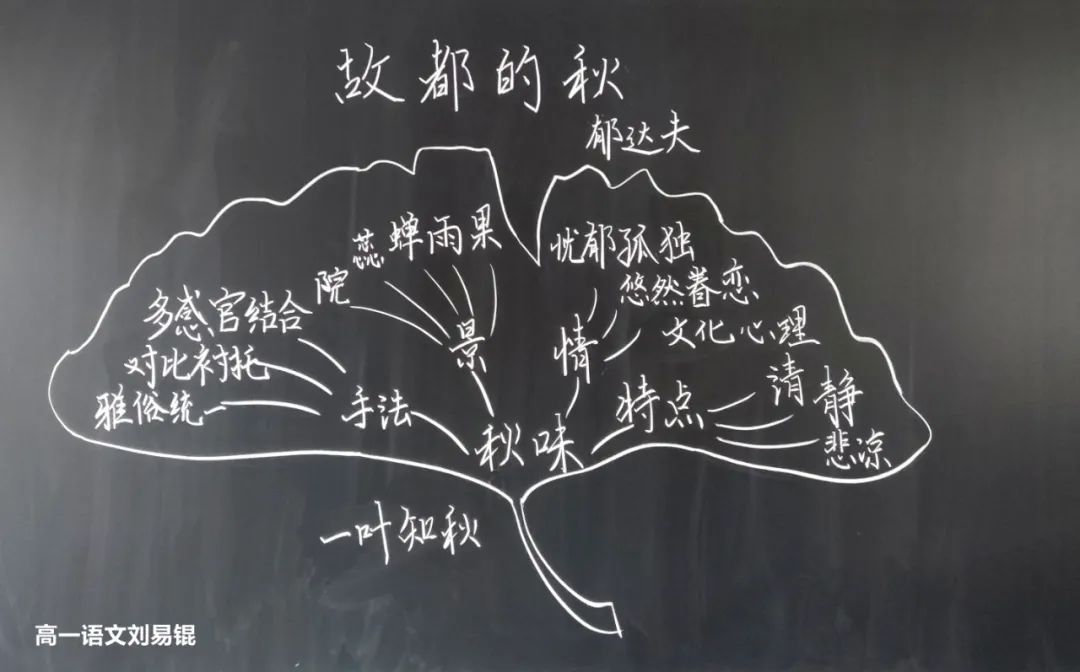 故都的秋
郁达夫
院 蕊 蝉 雨 果
景
多感官结合
对比衬托
雅俗统一
手法
忧郁孤独
悠然眷恋
文化心理
情
清
静
悲凉
特点
秋味
一叶知秋
高一语文刘易锟